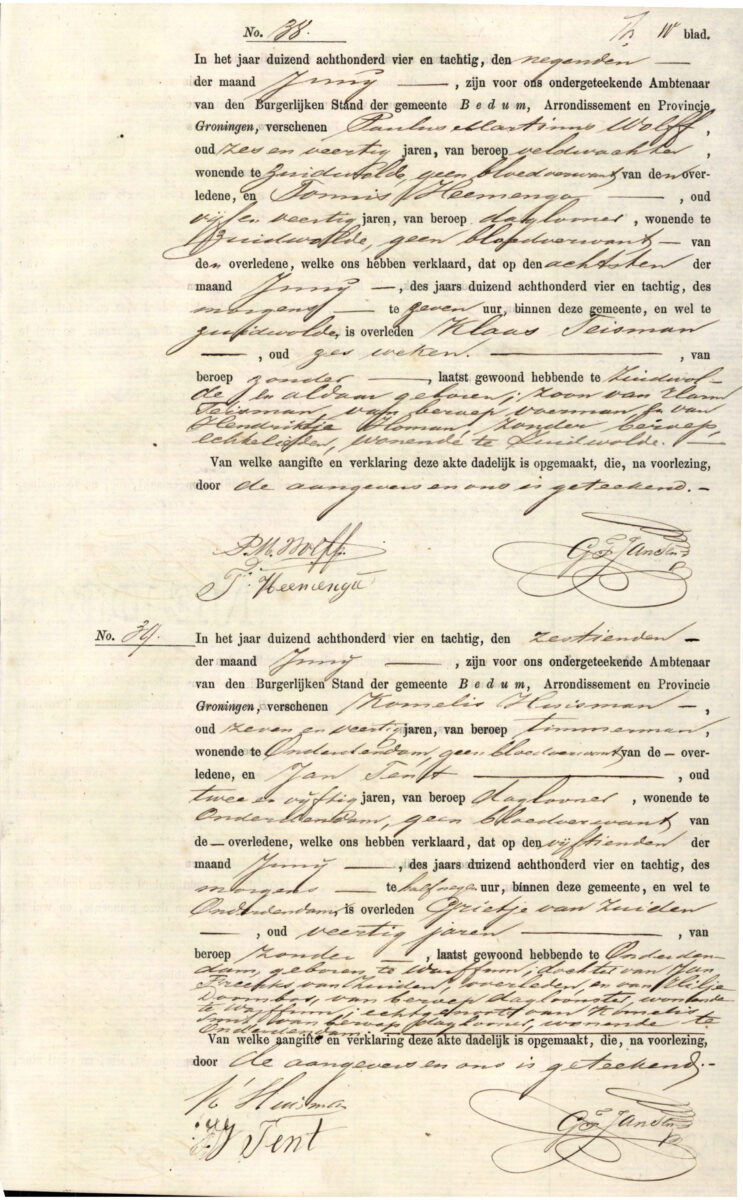 No. 38.
10e blad.
In het jaar duizend achthonderd vier en tachtig, den negenden —
der maand Juny —, zijn voor ons ondergeteekende Ambtenaar
van den Burgerlijken Stand der gemeente Bedum, Arrondissement en Provincie
Groningen, verschenen Paulus Martinus Wolff,
oud zes en veertig jaren, van beroep veldwachter,
wonende te Zuidwolde, geen bloedverwant van den over-
ledene, en Tonnis Heemenga —, oud
vijf en veertig jaren, van beroep daglooner, wonende te
Zuidwolde, geen bloedverwant — van
den overledene, welke ons hebben verklaard, dat op den achtsten der
maand Juny —, des jaars duizend achthonderd vier en tachtig, des
morgens — te zeven uur, binnen deze gemeente, en wel te
Zuidwolde, is overleden Klaas Teisman
—, oud zes weken. —, van
beroep zonder —, laatst gewoond hebbende te Zuidwol-
de en aldaar geboren; zoon van Harm
Teisman, van beroep voerman, en van
Hendriktje Homan, zonder beroep,
echtelieden, wonende te Zuidwolde. —
Van welke aangifte en verklaring deze akte dadelijk is opgemaakt, die, na voorlezing,
door de aangevers en ons is geteekend. —
P.M. Wolff
T. Heemenga
No. 39.
In het jaar duizend achthonderd vier en tachtig, den zestienden —
der maand Juny —, zijn voor ons ondergeteekende Ambtenaar
van den Burgerlijken Stand der gemeente Bedum, Arrondissement en Provincie
Groningen, verschenen Kornelis Huisman —,
oud zeven en veertig jaren, van beroep timmerman,
wonende te Onderdendam, geen bloedverwant van de — over-
ledene, en Jan Tent —, oud
twee en vijftig jaren, van beroep daglooner, wonende te
Onderdendam, geen bloedverwant van
de — overledene, welke ons hebben verklaard, dat op den vijftienden der
maand Juny —, des jaars duizend achthonderd vier en tachtig, des
morgens — te half negen uur, binnen deze gemeente, en wel te
Onderdendam, is overleden Grietje van Zuiden
—, oud veertig jaren —, van
beroep zonder —, laatst gewoond hebbende te Onderden-
dam, geboren te Warffum; dochter van Jan
Freerks van Zuiden, overleden, en van
Doornbos, van beroep dagloonster, wonende
te Warffum; echtgenoot van Kornelis
van beroep daglooner, wonende te
Onderdendam.
Van welke aangifte en verklaring deze akte dadelijk is opgemaakt, die, na voorlezing,
door de aangevers en ons is geteekend. —
K Huisman
J Tent